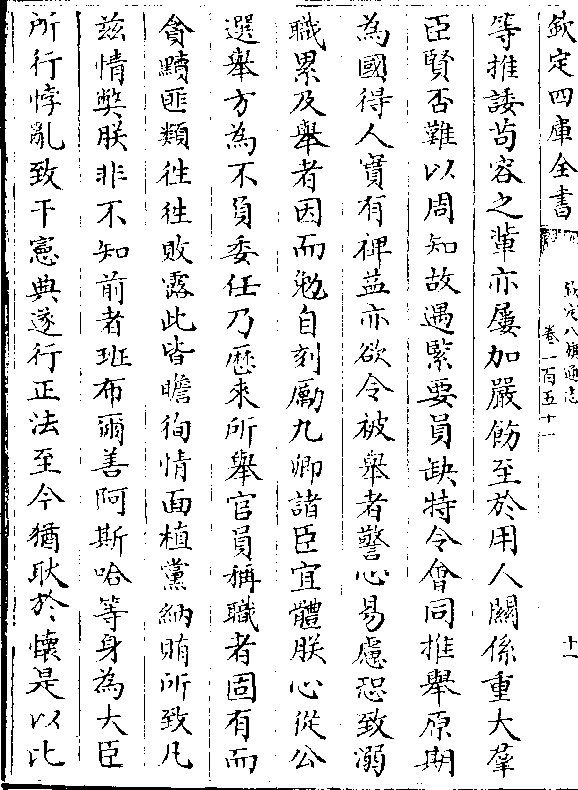 欽定四庫全書
欽定八旗通志
卷一百五十一
十一
等推諉茍容之輩亦屢加嚴飭至於用人關係重大羣
臣賢否難以周知故遇緊要員缺特令會同推舉原期
為國得人實有裨益亦欲令被舉者警心易慮恐致溺
職累及舉者因而勉自刻勵九卿諸臣宜體朕心從公
選舉方為不負委任乃歴來所舉官員稱職者固有而
貪黷匪類徃徃敗露此皆瞻徇情面植黨納賄所致凡
兹情弊朕非不知前者班布爾善阿斯哈等身為大臣
所行悖亂致干憲典遂行正法至今猶耿於懐是以比